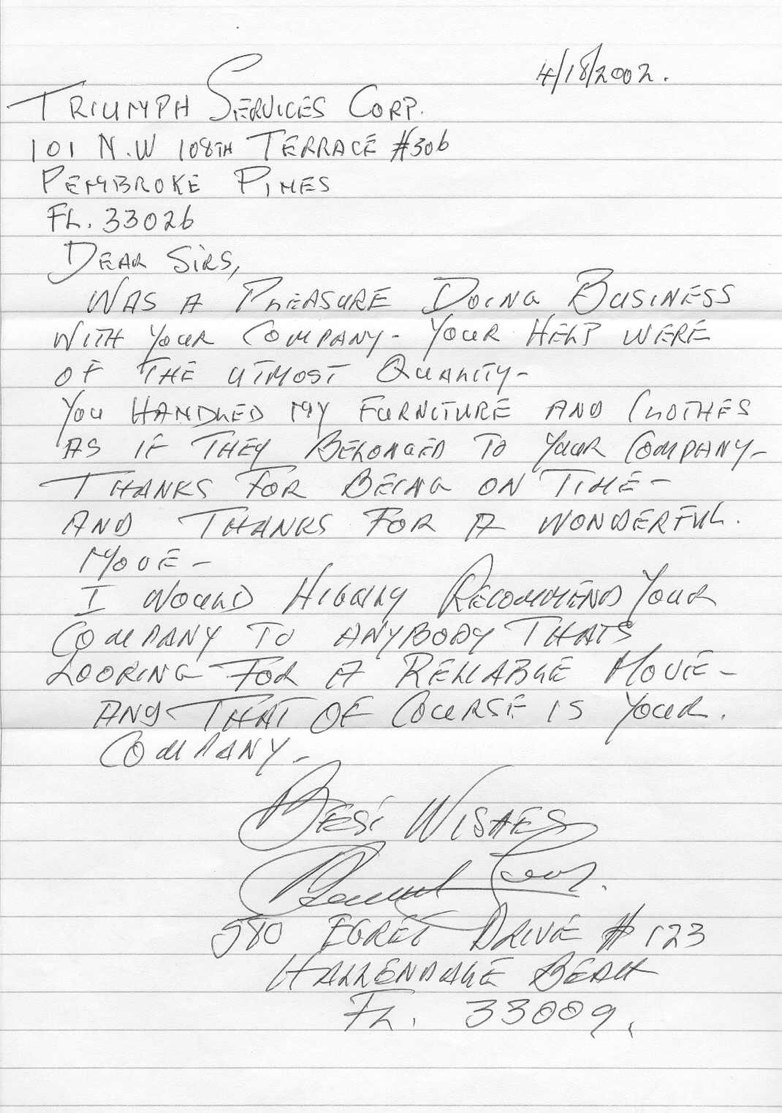 4/18/2002.
TRIUMPH SERVICES CORP.
101 N.W 108TH TERRACE #306
PEMBROKE PINES
FL. 33026
DEAR SIRS,
WAS A PLEASURE DOING BUSINESS
WITH YOUR COMPANY- YOUR HELP WERE
OF THE UTMOST QUALITY-
YOU HANDLED MY FURNITURE AND CLOTHES
AS IF THEY BELONGED TO YOUR COMPANY-
THANKS FOR BEING ON TIME-
AND THANKS FOR A WONDERFUL.
MOVE-
I WOULD HIGHLY RECOMMEND YOUR
COMPANY TO ANYBODY THATS
LOOKING FOR A RELIABLE MOVE-
AND THAT OF COURSE IS YOUR.
COMPANY-
BEST WISHES
580 EGRET DRIVE #123
HALLENDALE BEACH
FL. 33009.